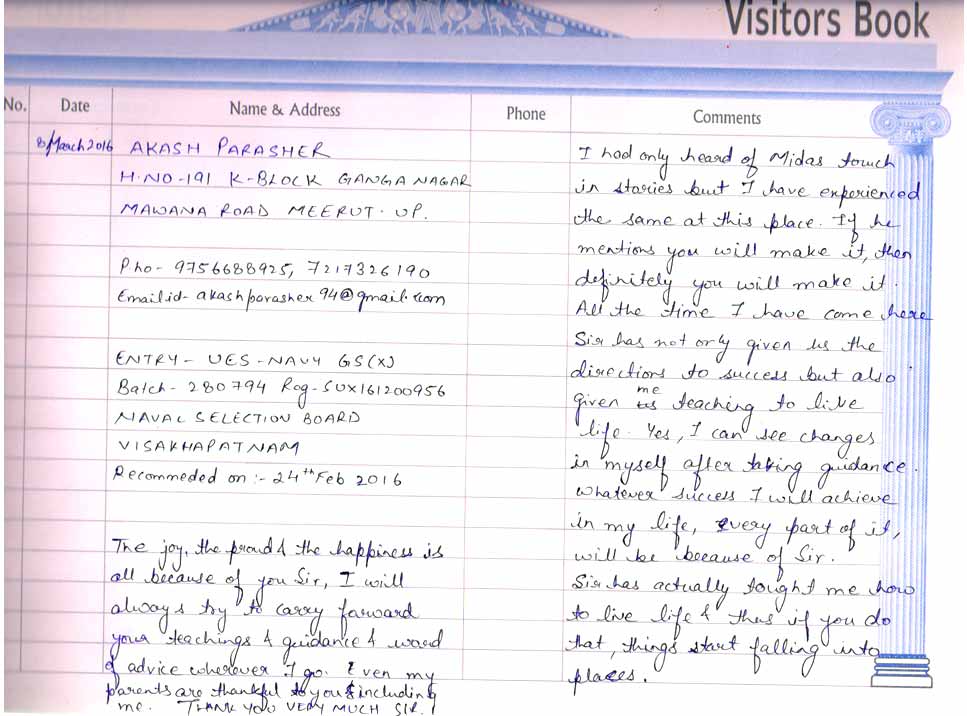 Visitors Book
No. Date Name & Address Phone Comments
8 March 2016 AKASH PARASHER
H.NO-191 K-BLOCK GANGA NAGAR
MAWANA ROAD MEERUT. UP.
Pho- 9756688925, 7217326190
Email.id- akashparasher94@gmail.com
ENTRY- UES-NAVY GS(X)
Batch- 280794 Rog-SUX161200956
NAVAL SELECTION BOARD
VISAKHAPATNAM
Recommeded on :- 24th Feb 2016
The joy, the proud & the happiness is
all because of you Sir, I will
always try to carry forward
your teachings & guidance & word
of advice wherever I go. Even my
parents are thankful to you & including
me. THANK YOU VERY MUCH SIR.
I had only heard of Midas touch
in stories but I have experienced
the same at this place. If he
mentions you will make it, then
definitely you will make it.
All the time I have come here
Sir has not only given us the
directions to success but also
given me teaching to live
life. Yes, I can see changes
in myself after taking guidance.
Whatever success I will achieve
in my life, every part of it,
will be because of Sir.
Sir has actually tought me how
to live life & thus if you do
that, things start falling into
places.